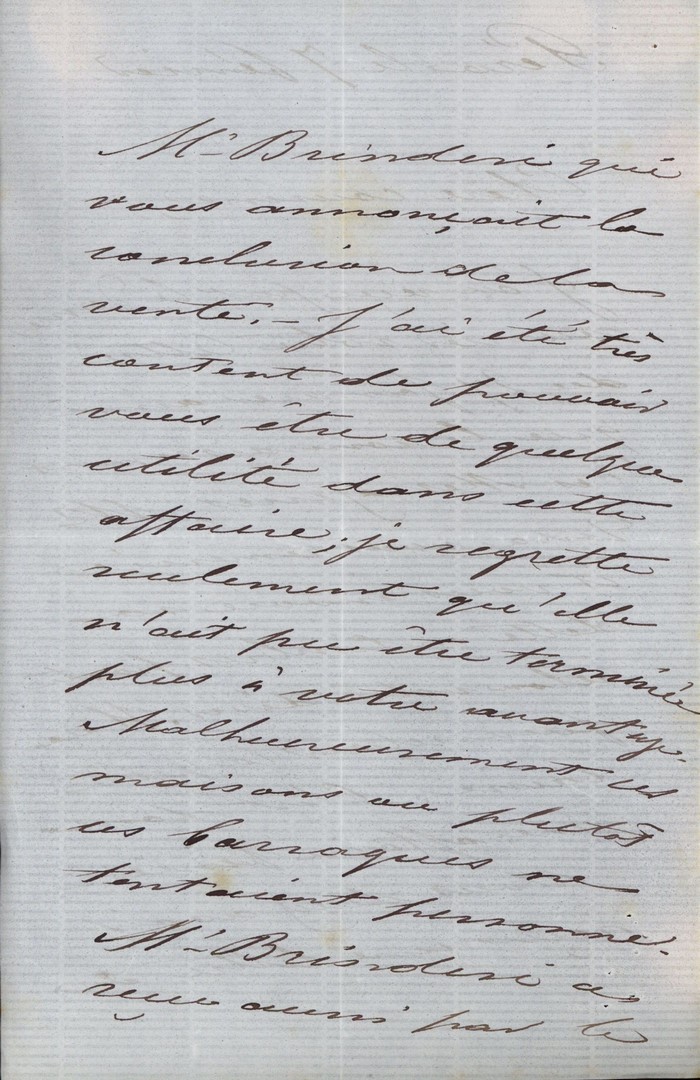 Mr Brindesi qui
vous annonçait la
conclusion de la
vente. – J'ai été très
content de pouvoir
vous être de quelque
utilité dans cette
affaire; je regrette
seulement qu'elle
n'ait pu être terminée
plus à votre avantage.
Malheureusement ces
maisons ou plutôt
ces barraques ne
tentaient personne.
Mr Brindesi a
reçu aussi par le